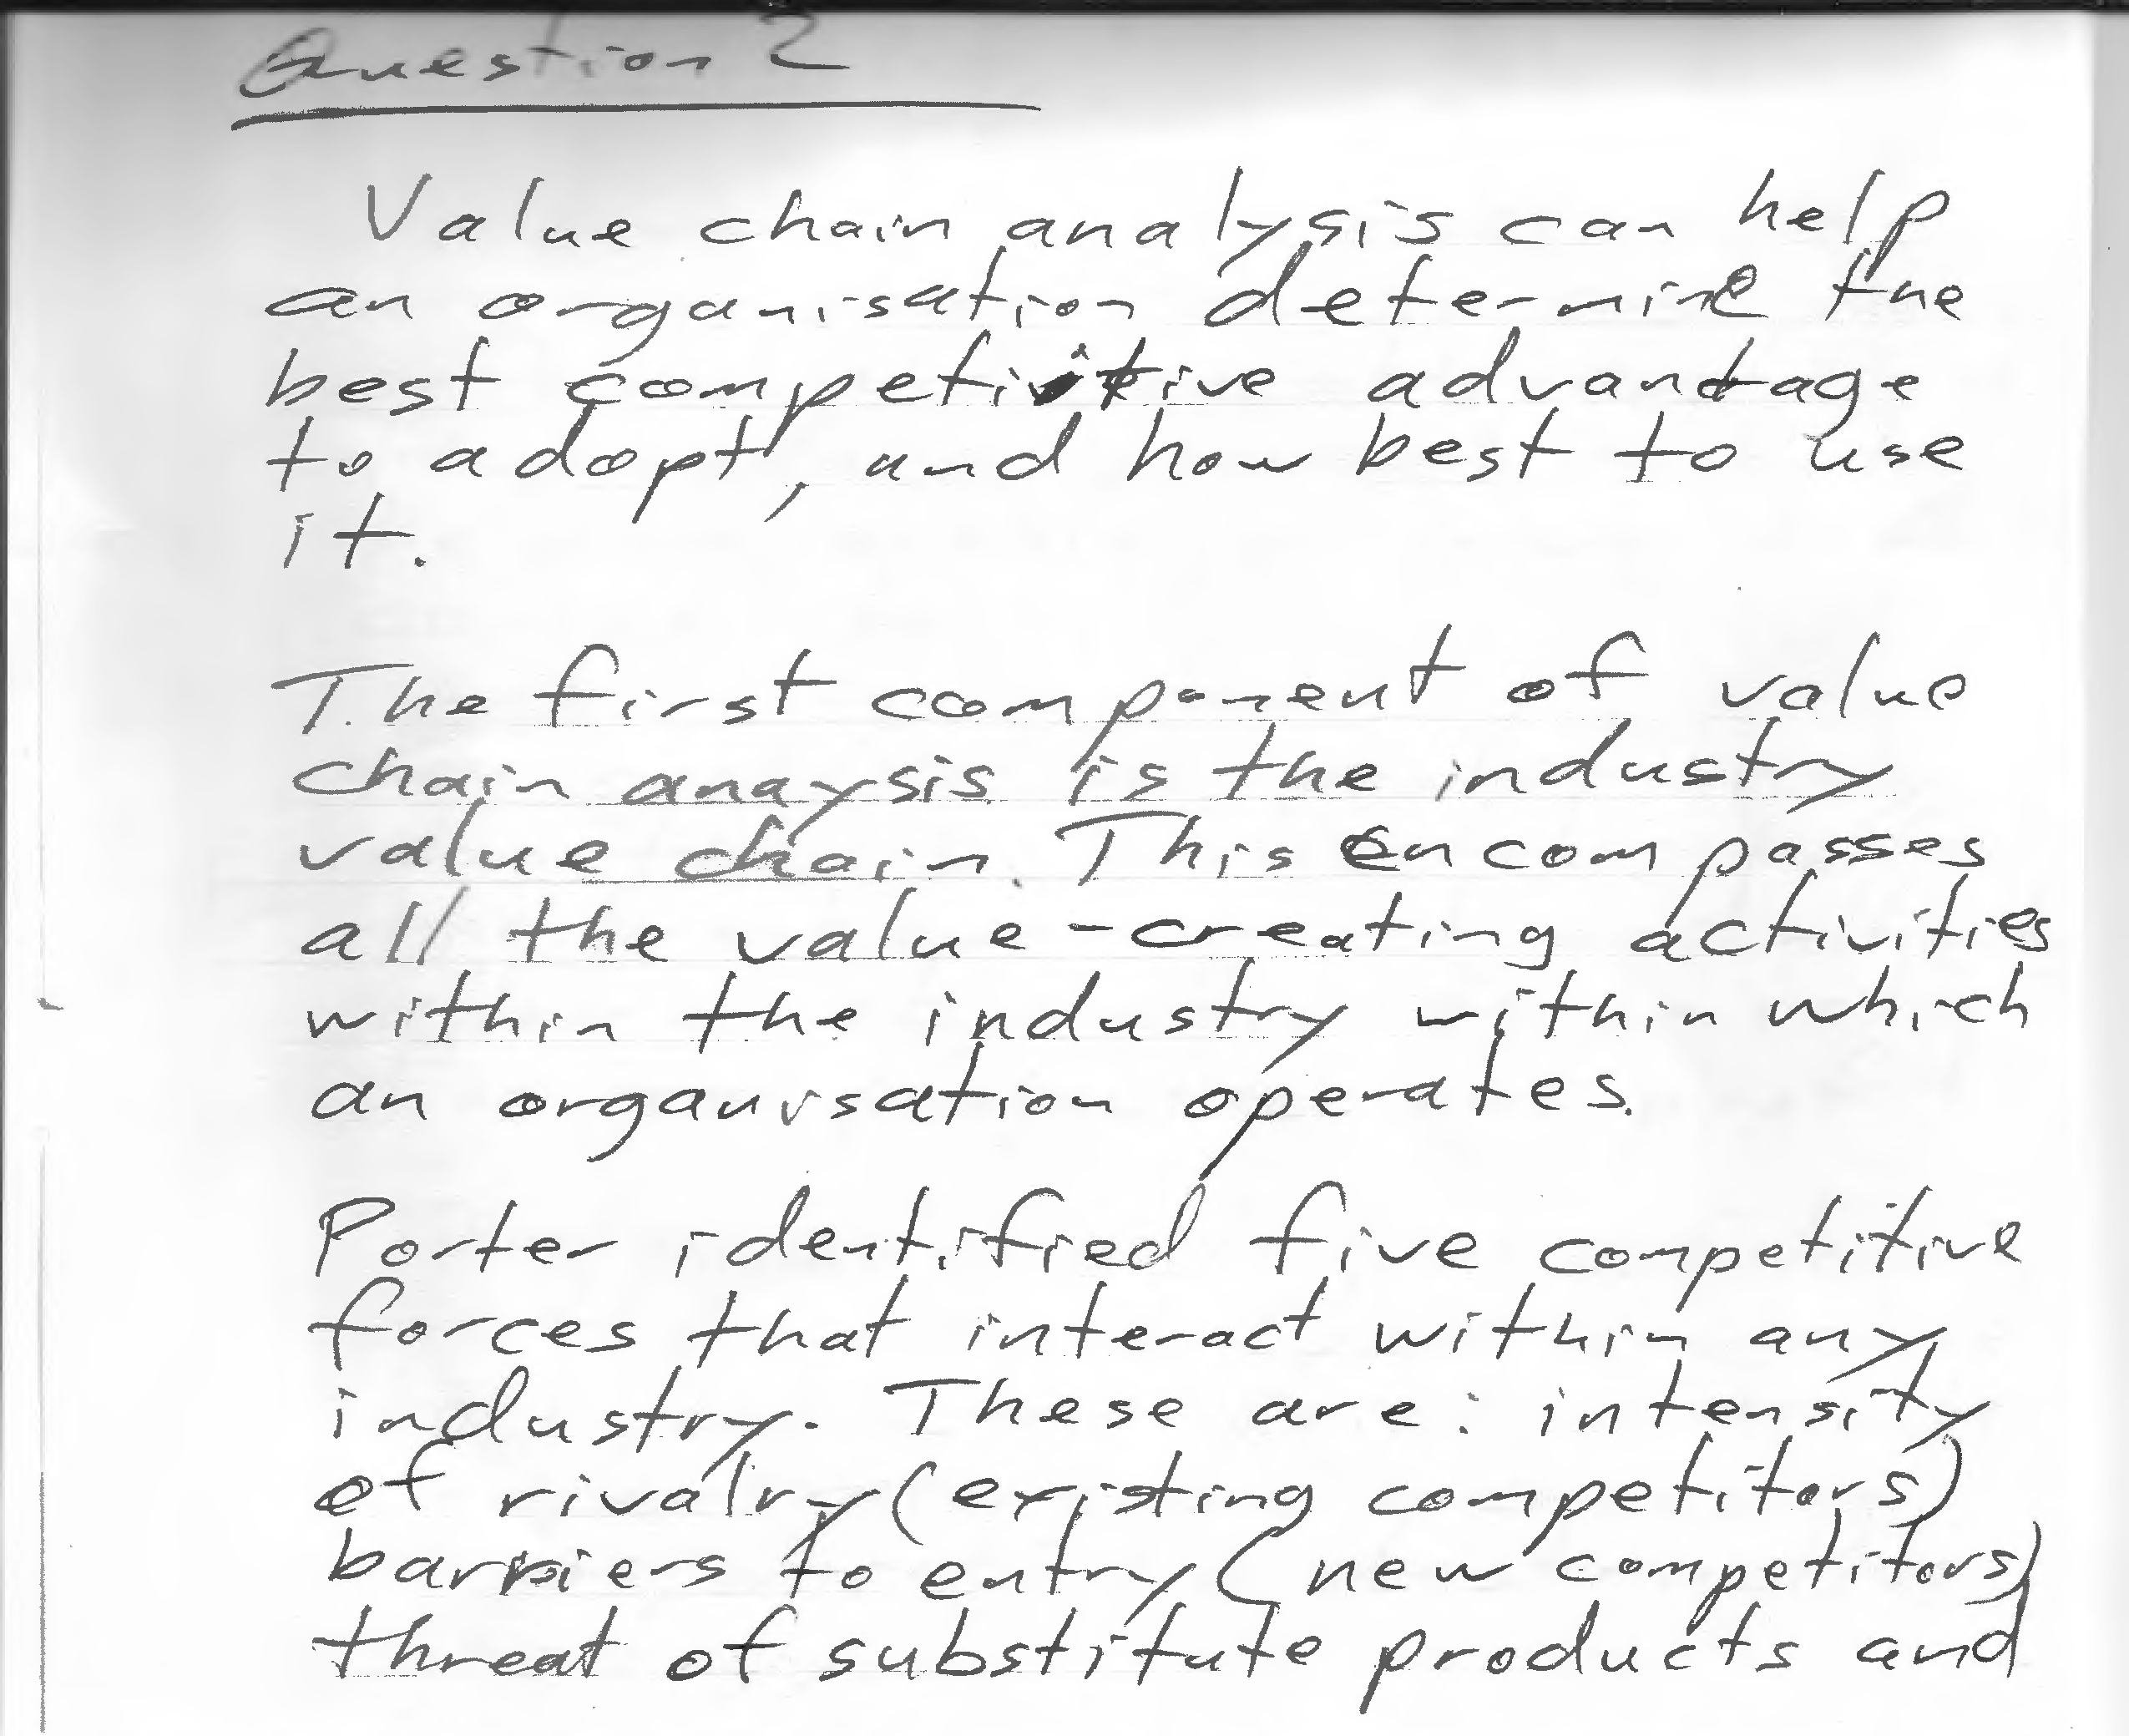 Question 2
Value chain analysis can help
an organisation determine the
best competitive advantage
to adopt, and how best to use
it.
The first component of value
chain anaysis is the industry
value chain. This encompasses
all the value-creating activities
within the industry within which
an organisation operates.
Porter identified five competitive
forces that interact within any
industry. These are: intensity
of rivalry (existing competitors)
barriers to entry (new competitors)
threat of substitute products and